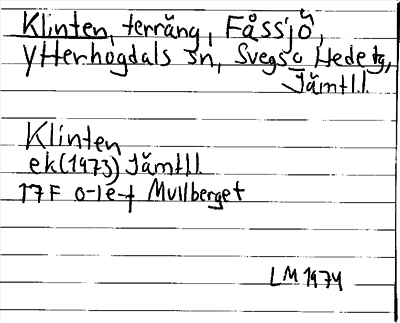 Klinten, terräng, Fåssjö,
Ytterhogdals sn, Svegs o Hede tg,
Jämtl.l.
Klinten
ek (1973) Jämtl.l.
17F o-1e-f Mullberget
LM 1974